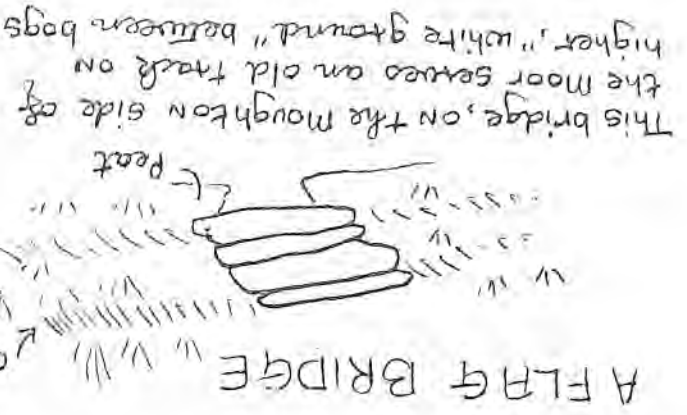 A FLAG BRIDGE
Peat
This bridge, on the Moughton side of
the moor serves an old track on
higher, "white ground" between bogs